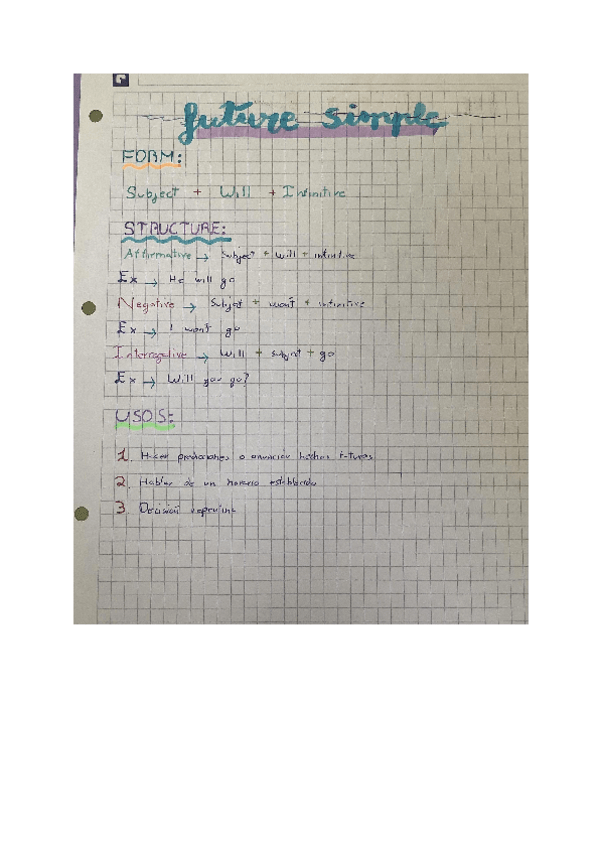 future simple
FORM:
Subject + Will + Infinitive
STRUCTURE:
Affirmative → Subject + Will + infinitive
Ex → He will go
Negative → Subject + won't + infinitive
Ex → I won't go
Interrogative → Will + subject + go
Ex → Will you go?
USOS:
1. Hacer predicciones o anunciar hechos futuros
2. Hablar de un horario establecido
3. Decisión